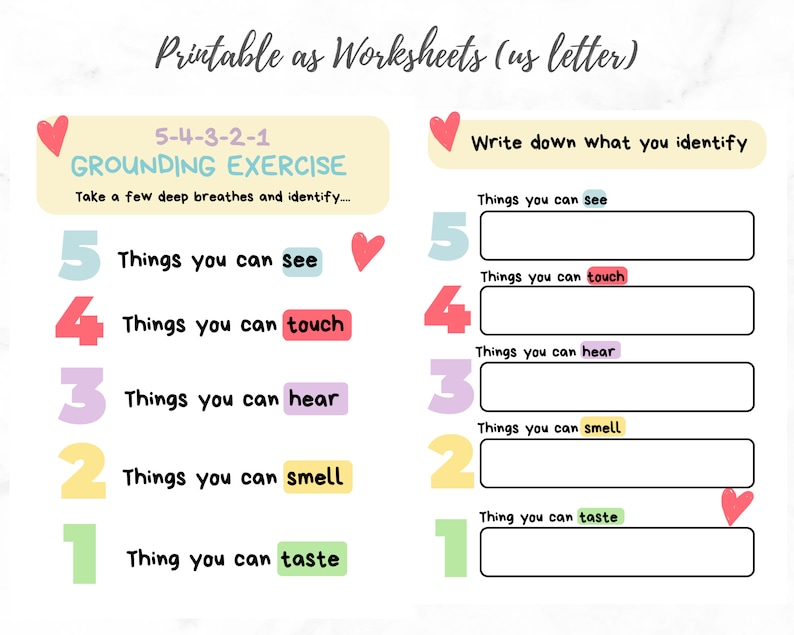 Printable as Worksheets (us letter)
5-4-3-2-1
GROUNDING EXERCISE
Take a few deep breathes and identify....
5 Things you can see
4 Things you can touch
3 Things you can hear
2 Things you can smell
1 Thing you can taste
Write down what you identify
5 Things you can see
4 Things you can touch
3 Things you can hear
2 Things you can smell
1 Thing you can taste